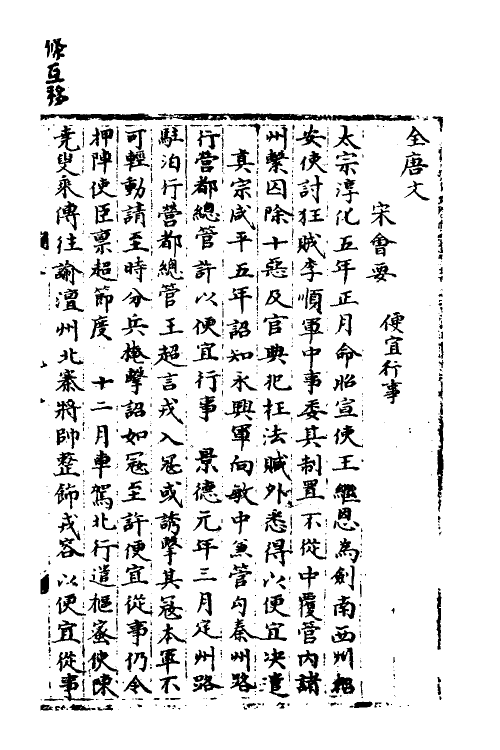 條互移
全唐文
宋會要
便宜行事
太宗淳化五年正月命昭宣使王繼恩為劍南西川招
安使討狂賊李順軍中事委其制置不從中覆管內諸
州繫囚除十惡及官典犯枉法贓外悉得以便宜决遣
真宗咸平五年詔知永興軍向敏中兼管勾秦州路
行營都總管許以便宜行事 景德元年三月定州路
駐泊行營都總管王超言戎入寇或誘擊其寇本軍不
可輕動請至時分兵掩擊詔如寇至許便宜從事仍令
押陣使臣禀超節度 十二月車駕北行遣樞密使陳
堯叟乘傳往諭澶州北寨將帥整飾戎容以便宜從事